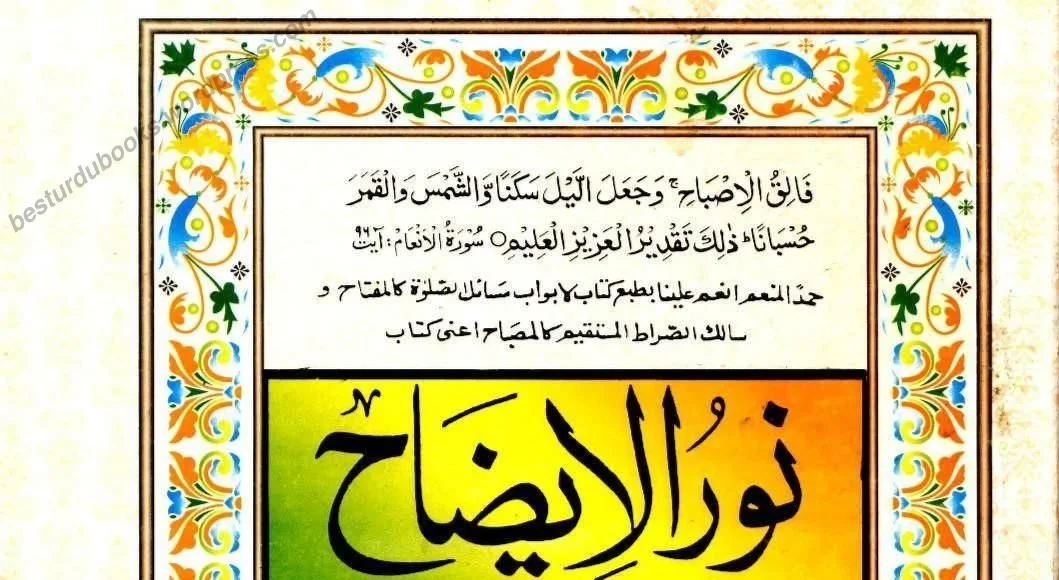 besturdubooks.wordpress.com
فَالِقُ الْاِصْبَاحِ ۚ وَجَعَلَ الَّيْلَ سَكَنًا وَّالشَّمْسَ وَالْقَمَرَ
حُسْبَانًا ؕ ذٰلِكَ تَقْدِيْرُ الْعَزِيْزِ الْعَلِيْمِ ○ سُوْرَةُ الْاَنْعَامْ : آیت ۹۶
حمدًا لمنعم انعم علينا بطبع كتاب لابواب مسائل الصّلوٰة كالمفتاح و
سالك الصّراط المستقيم كالمصباح اعنی كتاب
نورُ الاِيضَاح